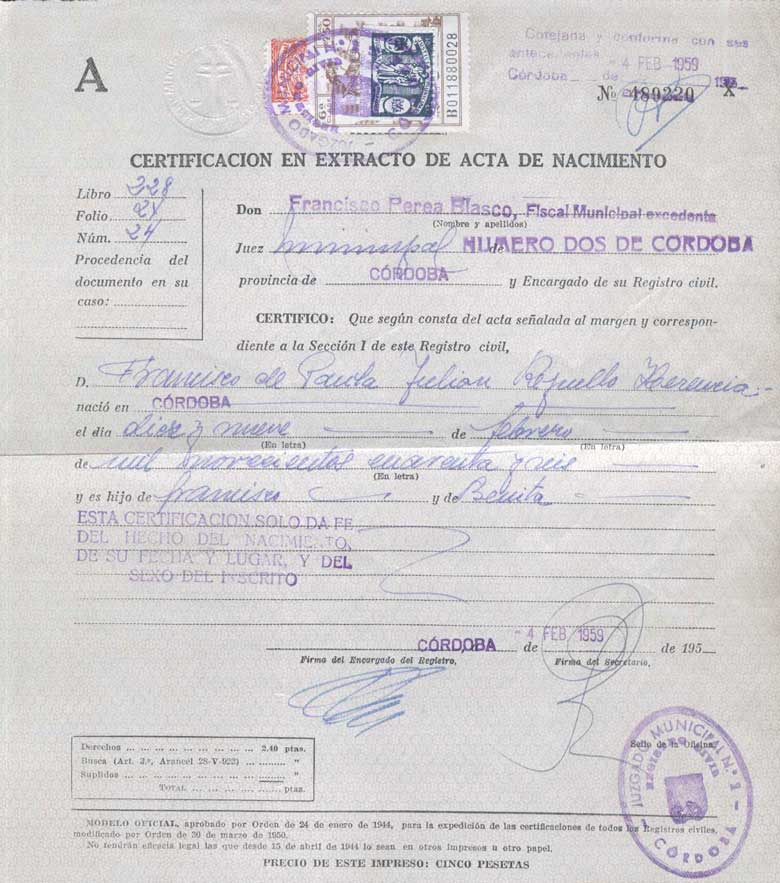 A
B011880028
Cotejada y conforme con sus
antecedentes
Córdoba - 4 FEB 1959
de 195
Nº 480220 X
CERTIFICACION EN EXTRACTO DE ACTA DE NACIMIENTO
Libro 228
Folio
Núm. 24
Procedencia del
documento en su
caso:
Don Francisco Perea Blasco, Fiscal Municipal excedente
(Nombre y apellidos)
Juez municipal de NUMERO DOS DE CORDOBA
provincia de CÓRDOBA y Encargado de su Registro civil.
CERTIFICO: Que según consta del acta señalada al margen y correspon-
diente a la Sección I de este Registro civil,
D. Francisco de Paula Julian Repullo Herencia
nació en CÓRDOBA
el día diez y nueve de febrero
(En letra) (En letra)
de mil novecientos cuarenta y seis
(En letra)
y es hijo de francisco y de Benita
ESTA CERTIFICACION SOLO DA FE
DEL HECHO DEL NACIMIENTO,
DE SU FECHA Y LUGAR, Y DEL
SEXO DEL INSCRITO
CÓRDOBA de - 4 FEB. 1959 de 195
Firma del Encargado del Registro, Firma del Secretario,
Sello de la Oficina,
JUZGADO MUNICIPAL N.º 2 - CÓRDOBA
REGISTRO CIVIL
Derechos ... 2,40 ptas.
Busca (Art. 3.º, Arancel 28-V-923) ... "
Suplidos ... "
TOTAL ... ptas.
MODELO OFICIAL, aprobado por Orden de 24 de enero de 1944, para la expedición de las certificaciones de todos los Registros civiles,
modificado por Orden de 30 de marzo de 1950.
No tendrán eficacia legal las que desde 15 de abril de 1944 lo sean en otros impresos u otro papel.
PRECIO DE ESTE IMPRESO: CINCO PESETAS